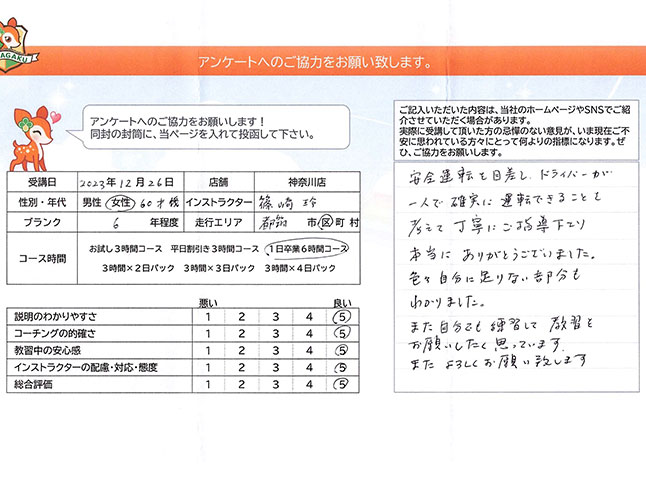 AGAKU
アンケートへのご協力をお願い致します。
アンケートへのご協力をお願いします！
同封の封筒に、当ページを入れて投函して下さい。
ご記入いただいた内容は、当社のホームページやSNSでご紹
介させていただく場合があります。
実際に受講して頂いた方の忌憚のない意見が、いま現在ご不
安に思われている方々にとって何よりの指標になります。ぜ
ひ、ご協力をお願いします。
受講日 2023年12月26日 店舗 神奈川店
性別・年代 男性 女性 60才様 インストラクター 篠崎 玲
ブランク 6 年程度 走行エリア 都筑 市 区 町 村
コース時間 お試し3時間コース 平日割引き3時間コース 1日卒業6時間コース
3時間×2日パック 3時間×3日パック 3時間×4日パック
悪い 良い
説明のわかりやすさ 1 2 3 4 5
コーチングの的確さ 1 2 3 4 5
教習中の安心感 1 2 3 4 5
インストラクターの配慮・対応・態度 1 2 3 4 5
総合評価 1 2 3 4 5
安全運転を目差し、ドライバーが
一人で確実に運転できることを
考えて丁寧にご指導下さり
本当にありがとうございました。
色々自分に足りない部分も
わかりました。
また自分でも練習して教習を
お願いしたく思っています。
またよろしくお願い致します